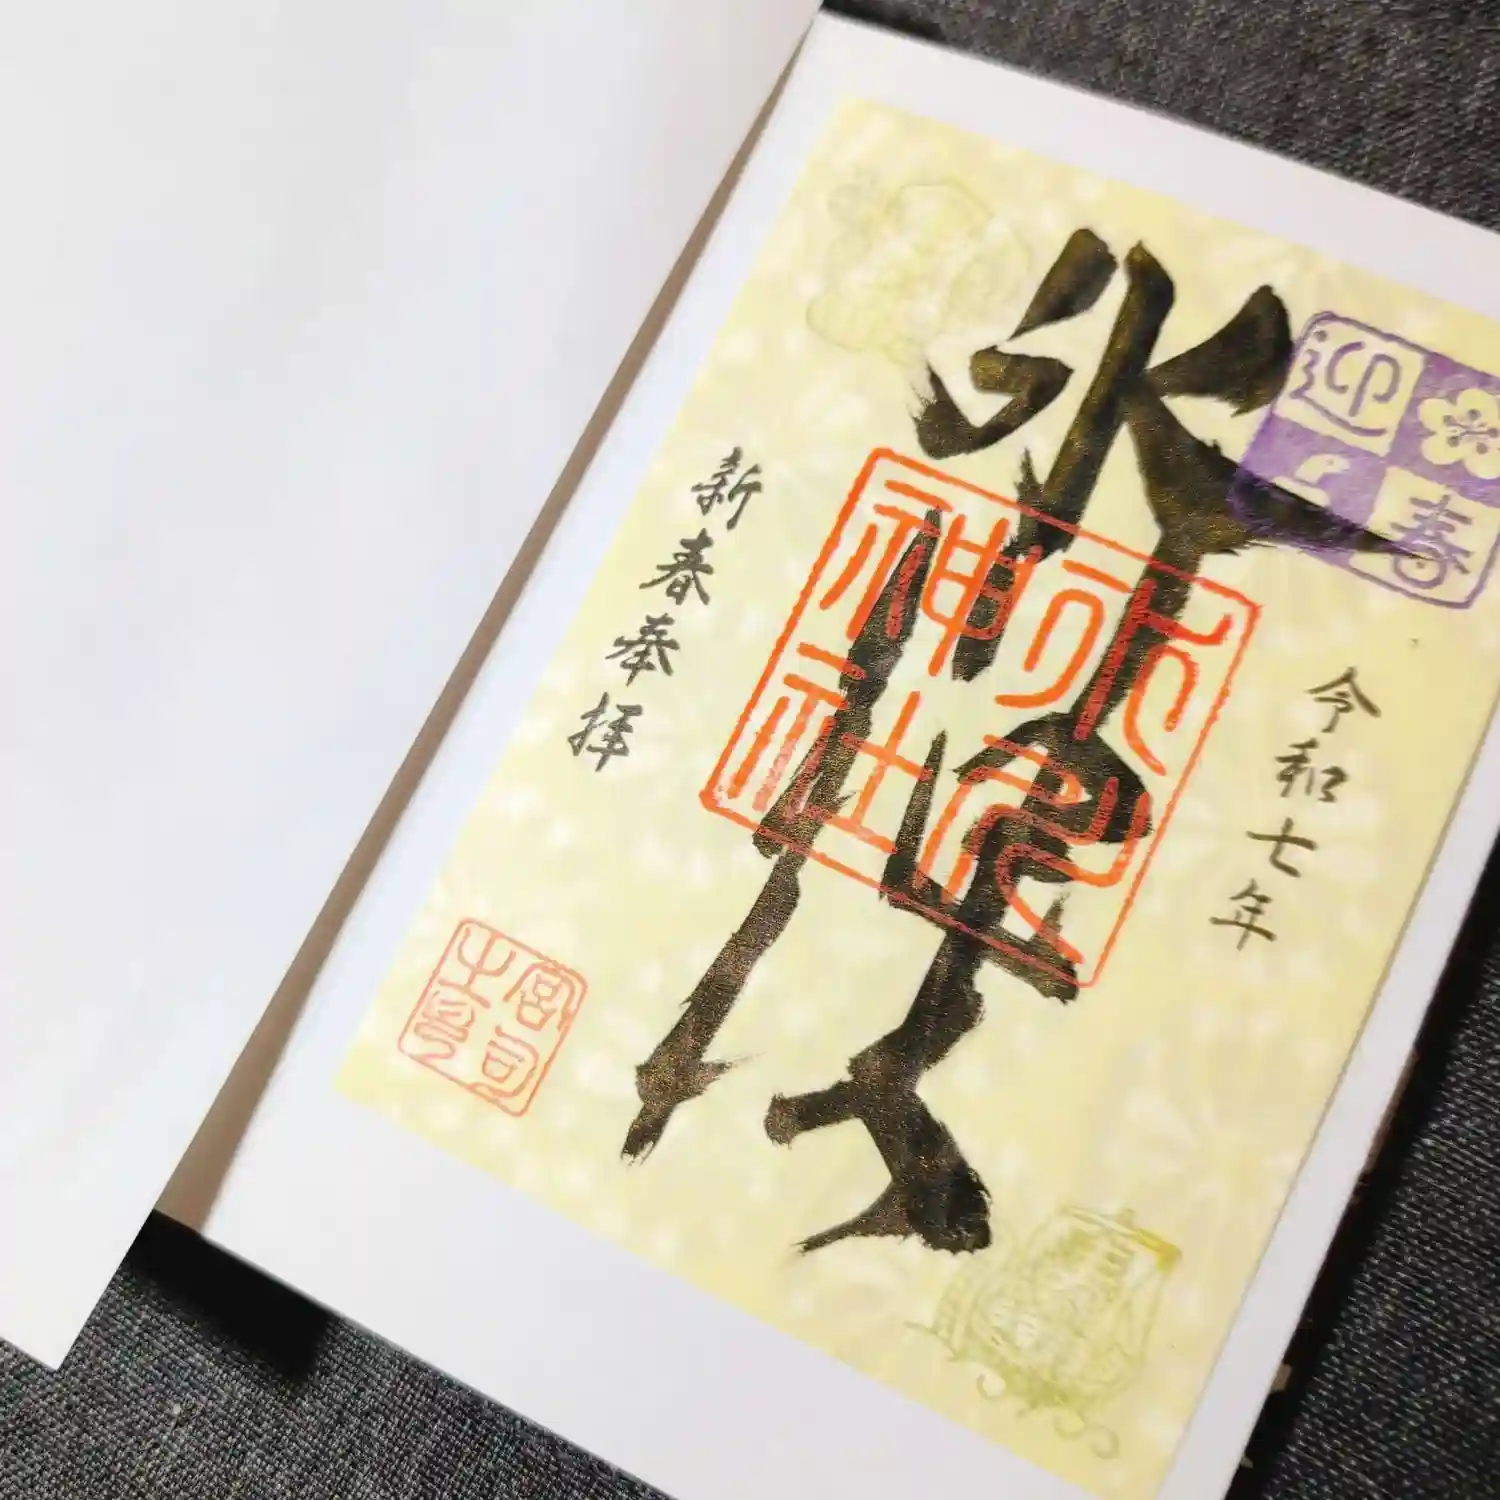 迎春
令和七年
氷川
神社
新春奉拝
宮司之印